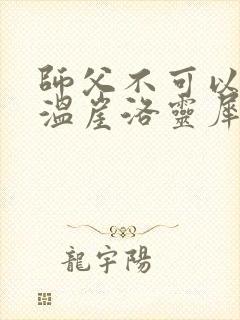 師父不可以
溫崖洛靈犀
龍宇陽